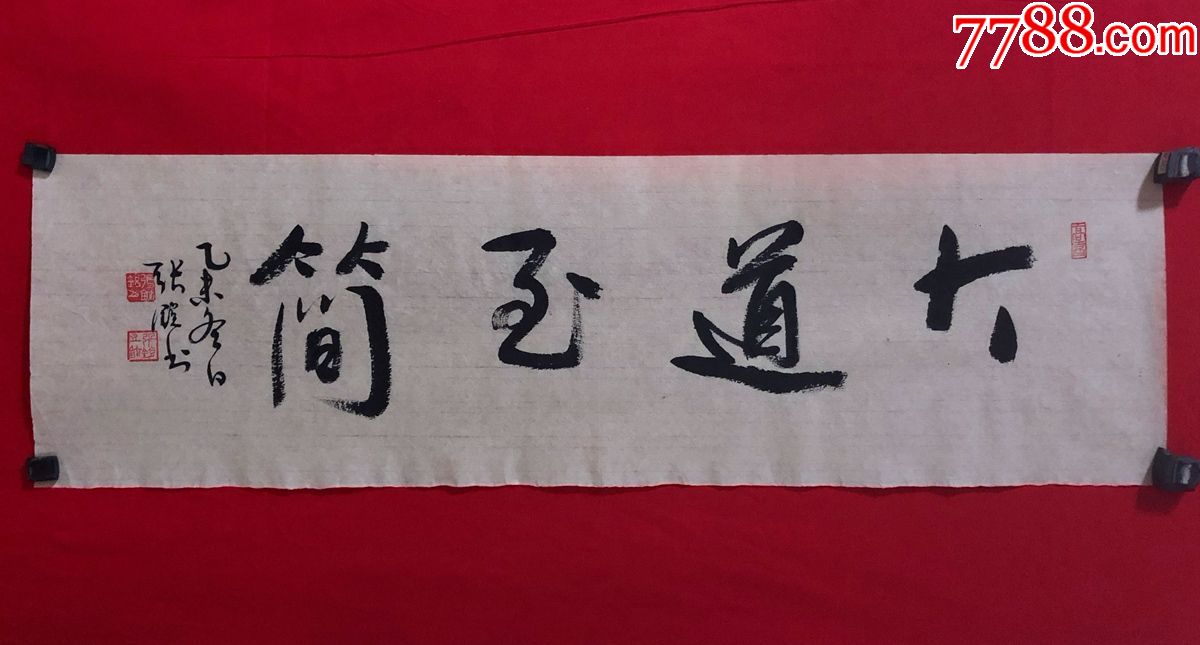 7788.com
大道至简
乙未冬日
张
书